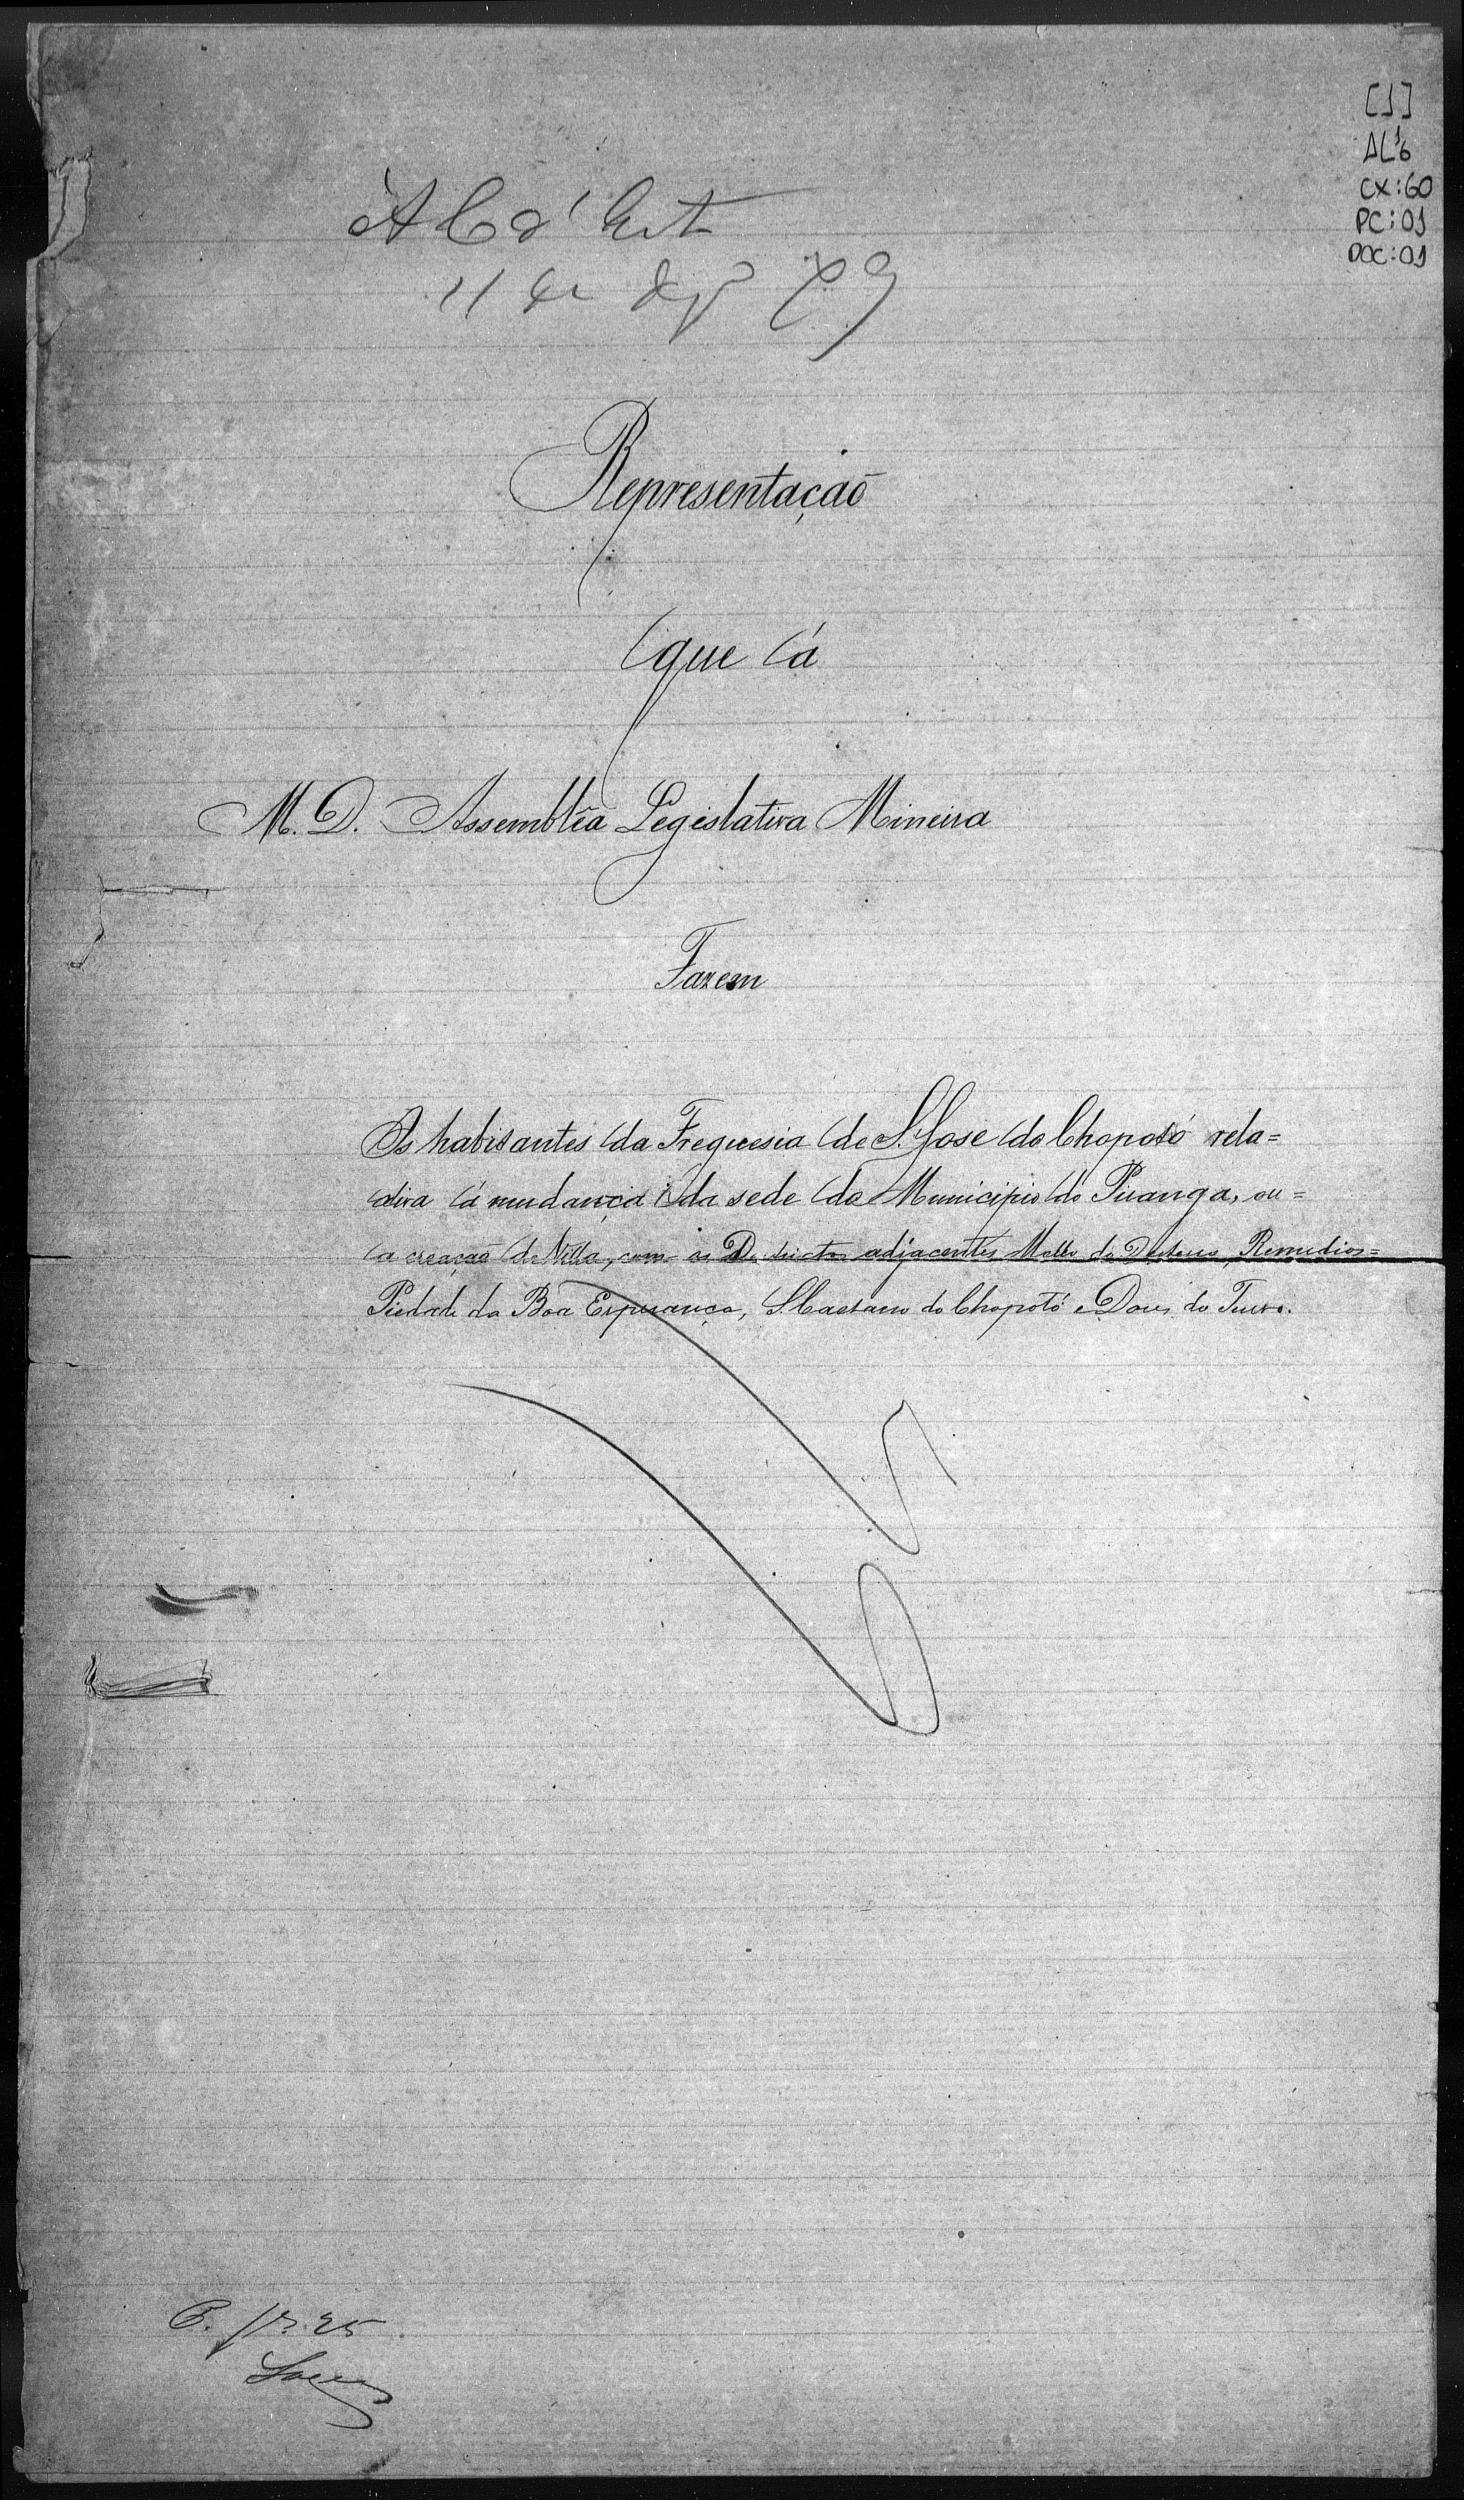 [1]
AL 1/6
CX:60
PC:01
DOC:01
Á C d' Est
11 de 79
Representação
que á
M. D. Assemblêa Legislativa Mineira
Fazem
Os habitantes da Freguesia de S. José do Chopotó rela=
tiva á mudança da sede do Municipio do Piranga, ou=
a creação de Villa, com os Districtos adjacentes, Mello do Desterro, Remedios=
Piedade da Boa Esperança, S. Caetano do Chopotó e Dores do Turvo.
25